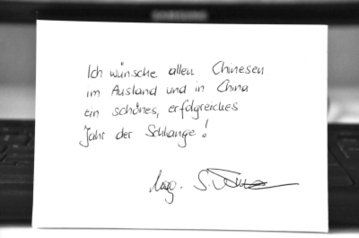 Ich wünsche allen Chinesen
im Ausland und in China
ein schönes, erfolgreiches
Jahr der Schlange!
Mag. S.